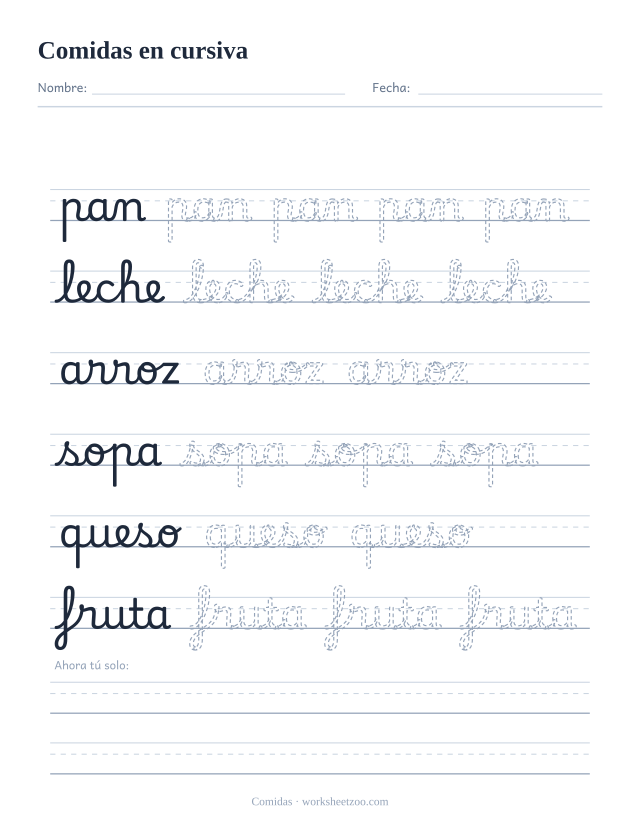 Comidas en cursiva
Nombre: Fecha:
pan pan pan pan pan
leche leche leche leche
arroz arroz arroz
sopa sopa sopa sopa
queso queso queso
fruta fruta fruta fruta
Ahora tú solo:
Comidas · worksheetzoo.com